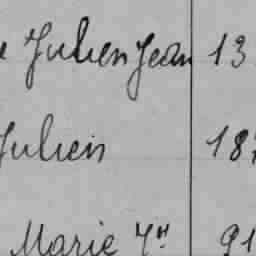 Julien Jean 13
Julien 18
Marie 91